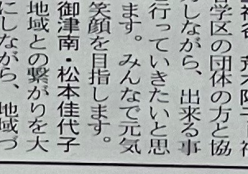 学区の団体の方と協
力しながら、出来る事
行っていきたいと思
ます。みんなで元気
笑顔を目指します。
御津南・松本佳代子
地域との繋がりを大
にしながら、地域づ